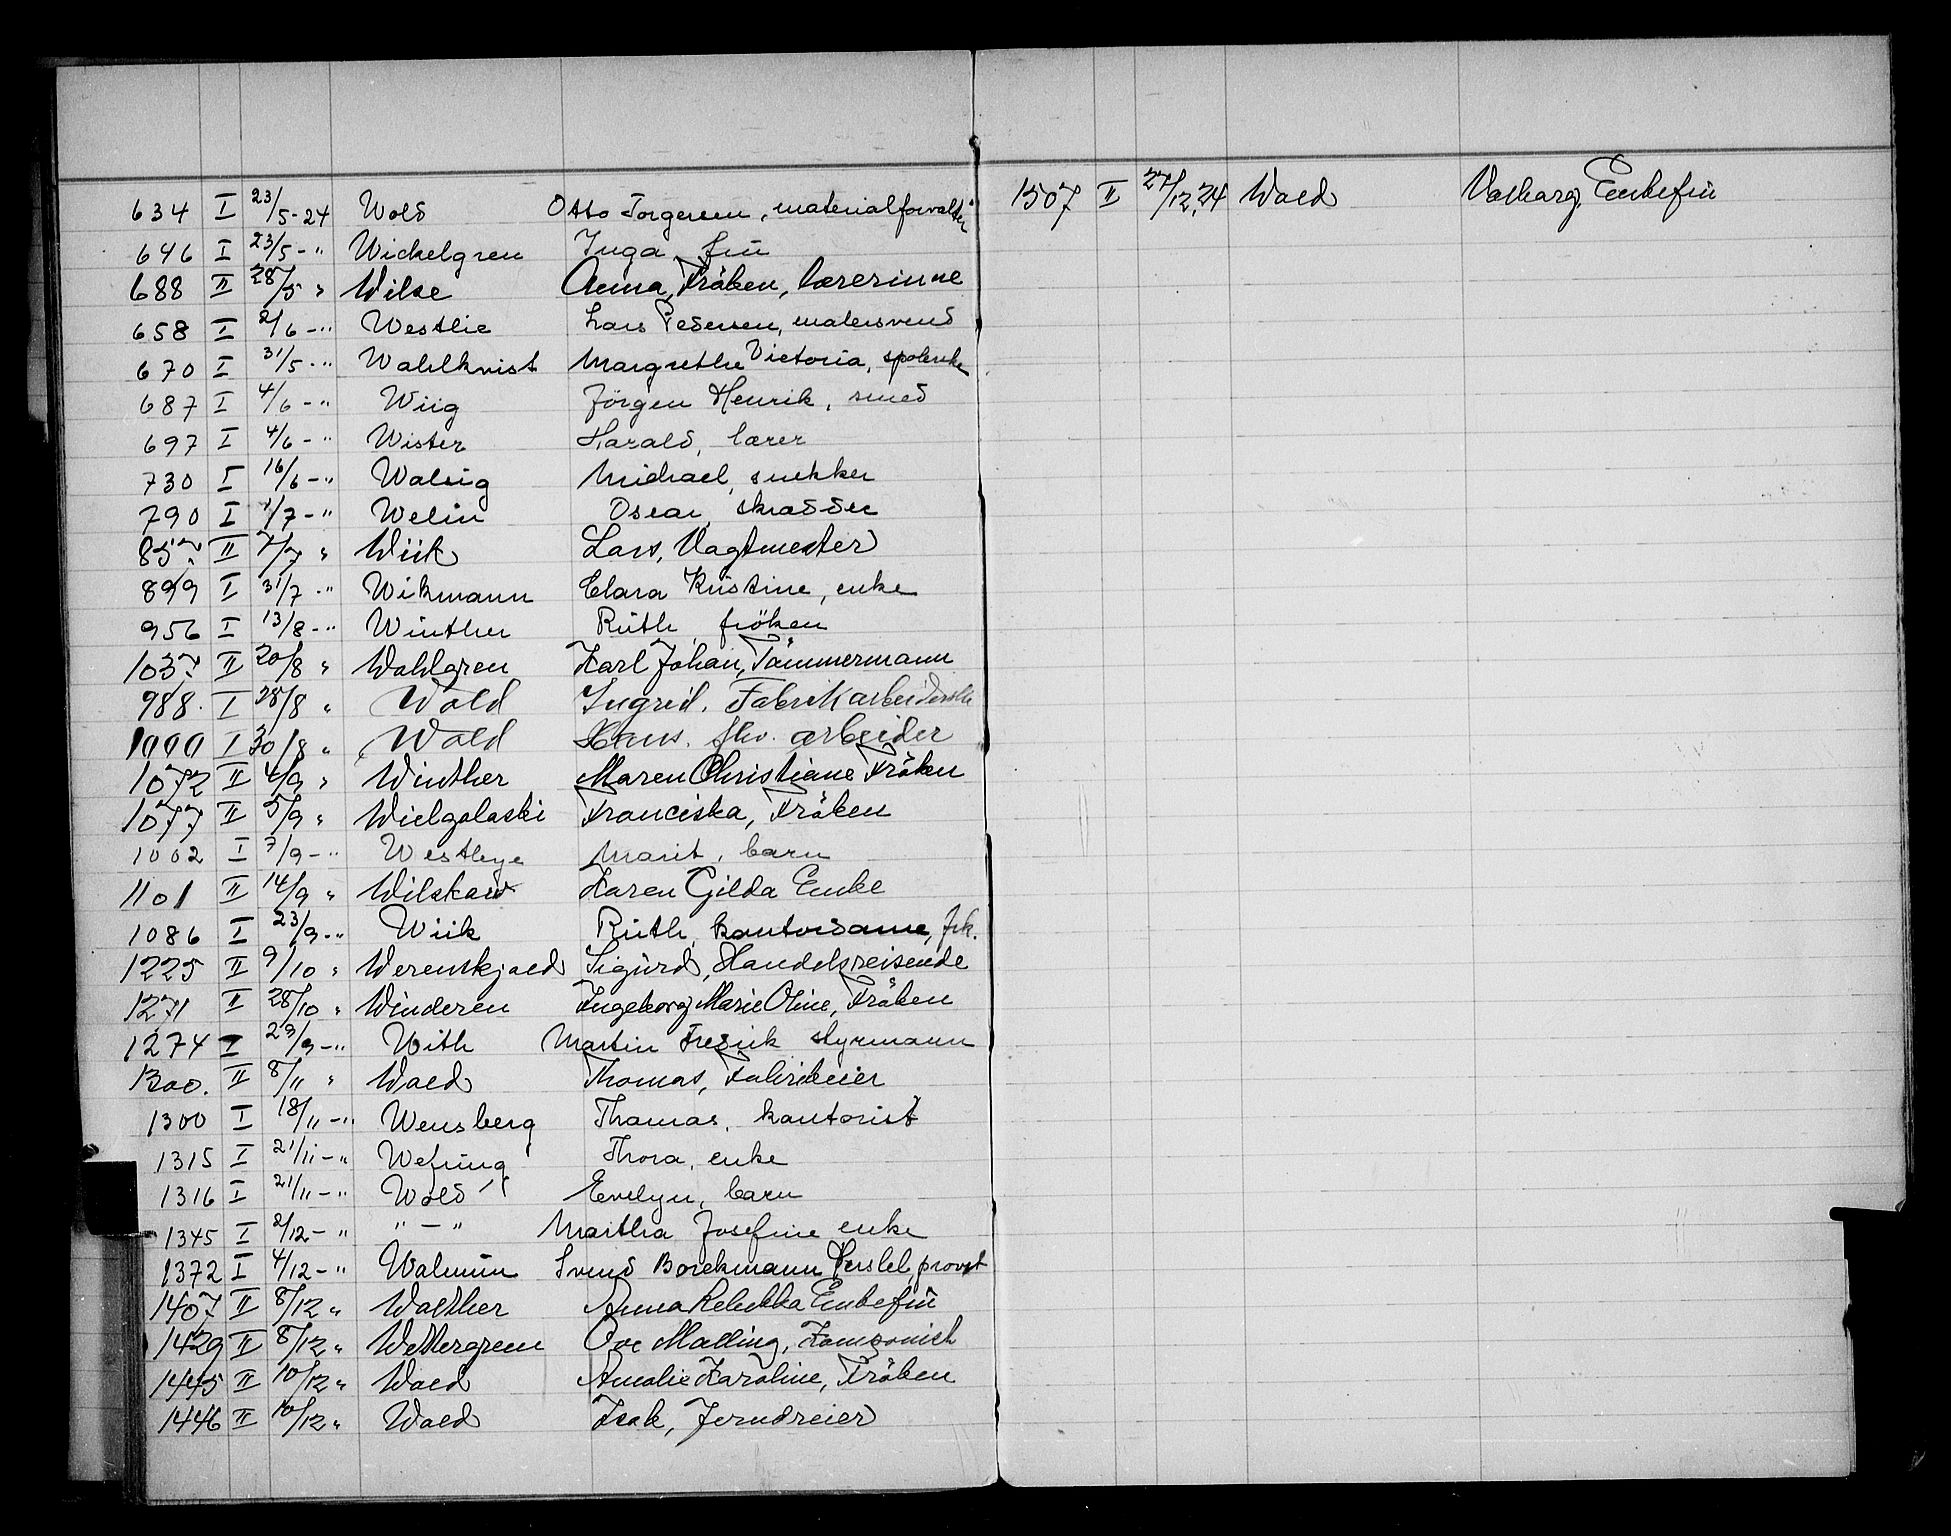 634 I 23/5-24 Wold Otto Torgersen, materialforvalter
646 I 23/5-" Wickelgren Inga, fru
688 II 28/5 " Wilse Anna, Fröken, lærerinne
658 I 2/6-" Westlie Lars Pedersen, malersvend
670 I 31/5-" Wahlkvist Margrethe Victoria, spolerske
687 I 4/6-" Wiig Jörgen Henrik, smed
697 I 4/6-" Wister Harald, lærer
730 I 16/6-" Walsig Michael, snekker
790 I 1/7-" Welin Oscar, skrædder
857. II 7/7 " Wiik Lars, Vagtmester
899 I 31/7-" Wikmann Clara Kristine, enke
956 I 13/8-" Winther Ruth, fröken
1037 II 20/8 " Wahlgren Karl Johan, Tömmermann
988. I 28/8 " Wold Ingrid, Fabrikarbeiderske
1000 I 30/8 " Wold Hans, fhv. arbeider
1072 II 4/9 " Winther Maren Christiane Fröken
1077 II 5/9 " Wielgolaski Franciska, Fröken
1002 I 7/9-" Westleye Marit, barn
1101 II 14/9 " Wilskow Karen Gilda Enke
1086 I 23/9-" Wiik Ruth, kontordame, frk.
1225 II 9/10 " Werenskjold Sigurd, Handelsreisende
1271 II 28/10 " Winderen Ingeborg Marie Oline, Fröken
1274 I 29/9-" With Martin Fredrik styrmann
1300. II 8/11 " Wold Thomas, Fabrikeier
1300 I 18/11-" Wensberg Thomas, kontorist
1315 I 21/11-" Wefring Thora, enke
1316 I 21/11-" Wold Evelyn, barn
1345 I 2/12-" " - " Martha Josefine enke
1372 I 4/12-" Walnum Svend Borckmann Hersleb, provst
1407 II 8/12 " Walther Anna Rebekka Enkefru
1429 II 8/12 " Wettergreen Ove Malling, Komponist
1445 II 10/12 " Wold Amalie Karoline, Fröken
1446 II 10/12 " Wold Isak, Jerndreier
1507 II 27/12,24 Wold Valborg, Enkefru